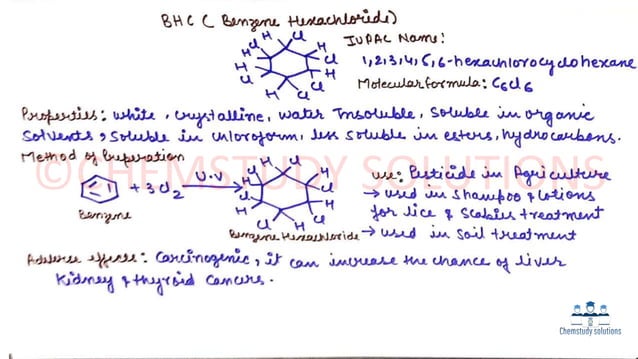 BHC ( Benzene Hexachloride)
IUPAC Name:
1,2,3,4,5,6-hexachlorocyclohexane
Molecular formula: C6Cl6
H Cl H Cl H Cl H Cl H Cl H Cl
Properties: White, crystalline, water Insoluble, soluble in organic
solvents, soluble in chloroform, less soluble in esters, hydrocarbons.
Method of Preperation
©CHEMSTUDY SOLUTIONS
+ 3Cl2 U.V
H Cl H Cl H Cl H Cl H Cl H Cl
Benzene
Benzene Hexachloride
use: Pesticide in Agriculture
→ used in shampoo & lotions
for lice & scabies treatment
→ used in soil treatment
Adverse effects: Carcinogenic, it can increase the chance of liver
kidney & thyroid cancers.
Chemstudy solutions